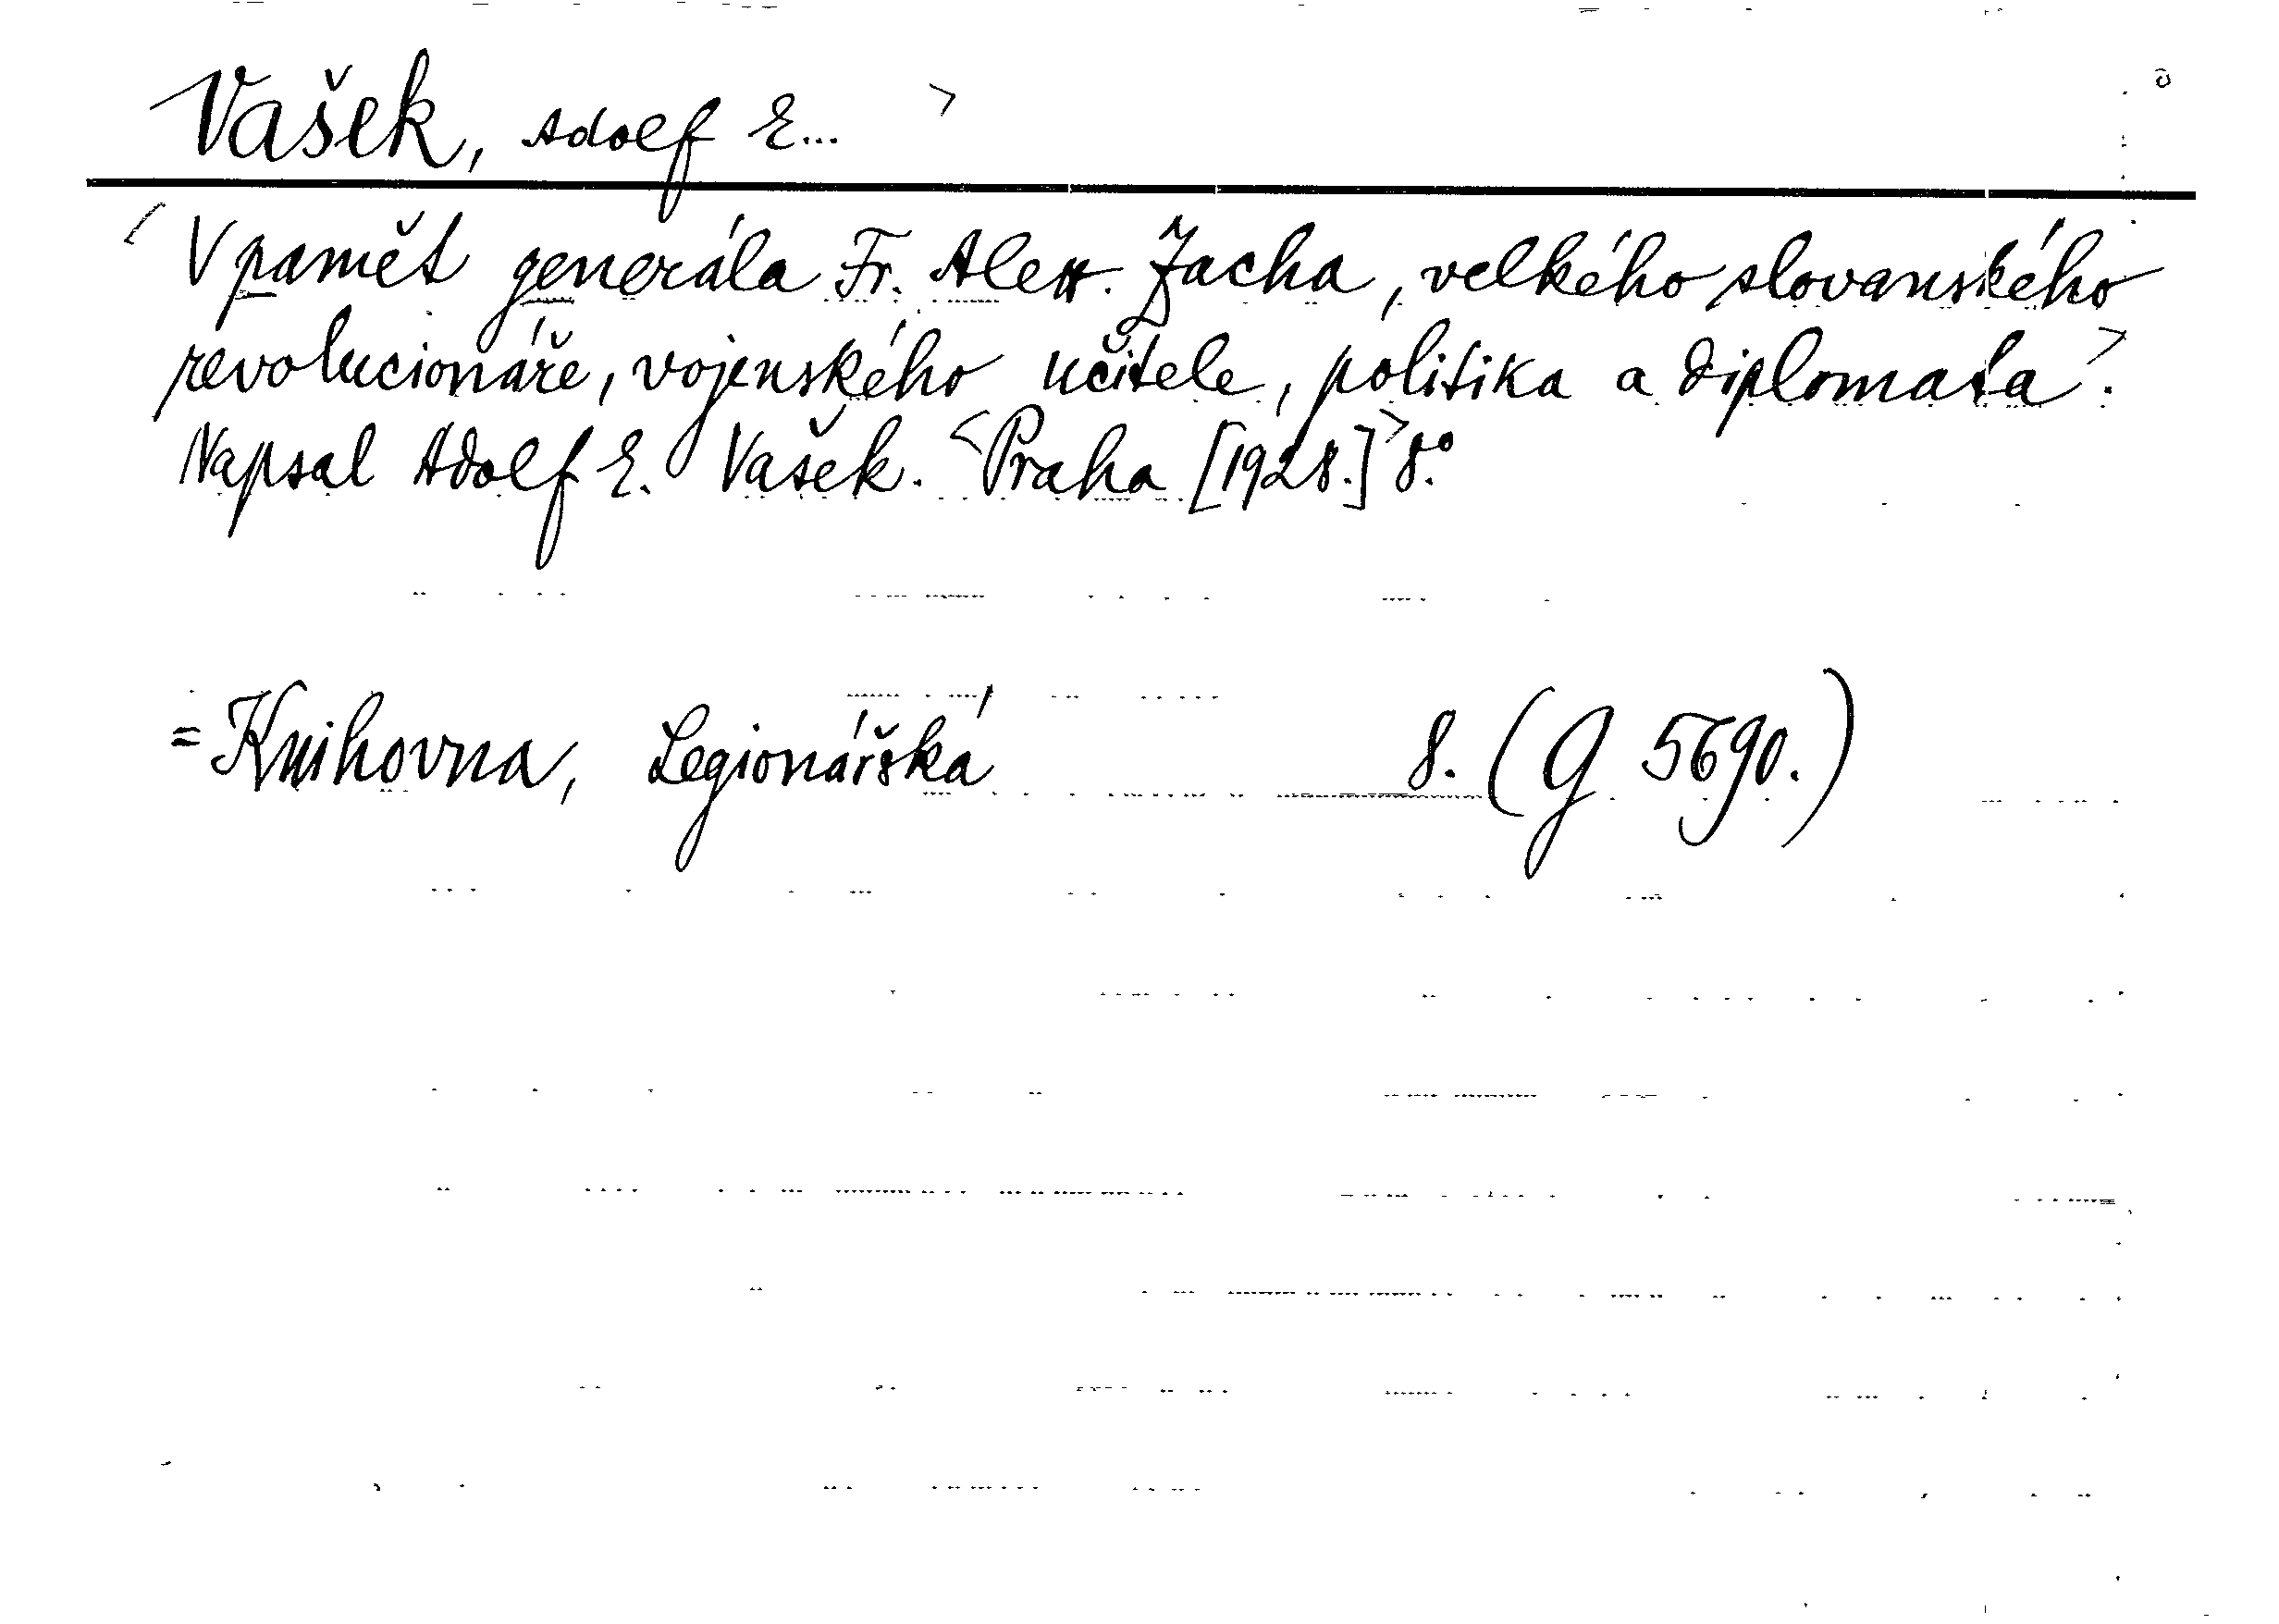 Vašek, Adolf E... >
<V paměť generála Fr. Alex. Zacha, velkého slovanského
revolucionáře, vojenského učitele, politika a diplomata>.
Napsal Adolf E. Vašek. <Praha [1928.]> 8.°
= Knihovna, Legionářská 8. (G 5690.)